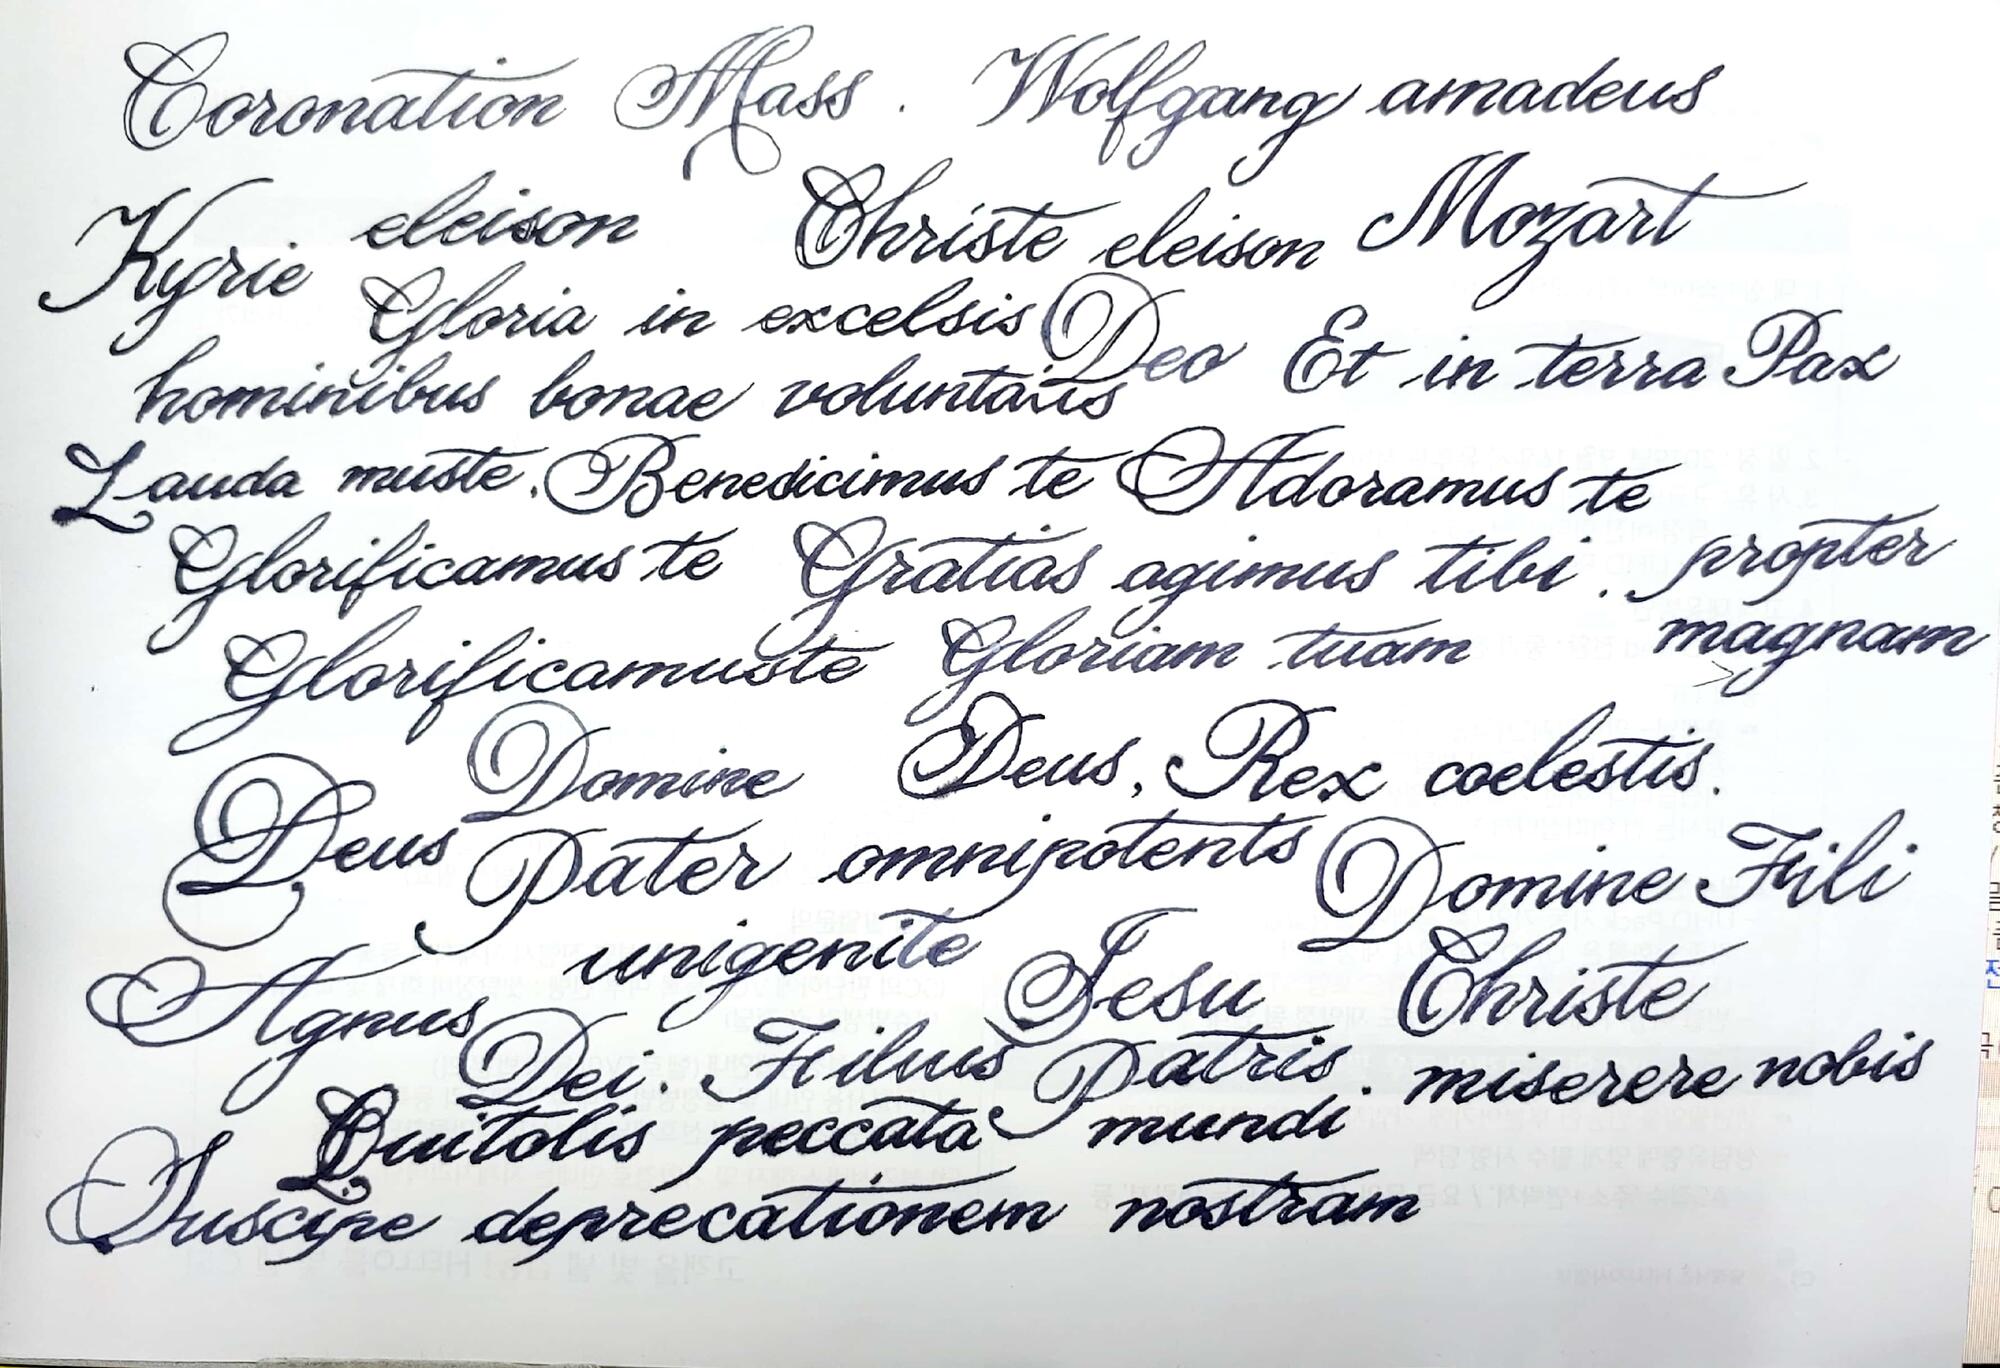 Coronation Mass . Wolfgang amadeus
Kyrie eleison Christe eleison Mozart
Gloria in excelsis Deo Et in terra Pax
hominibus bonae voluntatis
Lauda muste. Benedicimus te Adoramus te
Glorificamus te Gratias agimus tibi . propter
Glorificamuste Gloriam tuam magnam
Domine Deus, Rex coelestis.
Deus Pater omnipotents Domine Fili
unigenite Jesu Christe
Agnus Dei. Filius Patris . miserere nobis
Quitolis peccata mundi
Suscipe deprecationem nostram